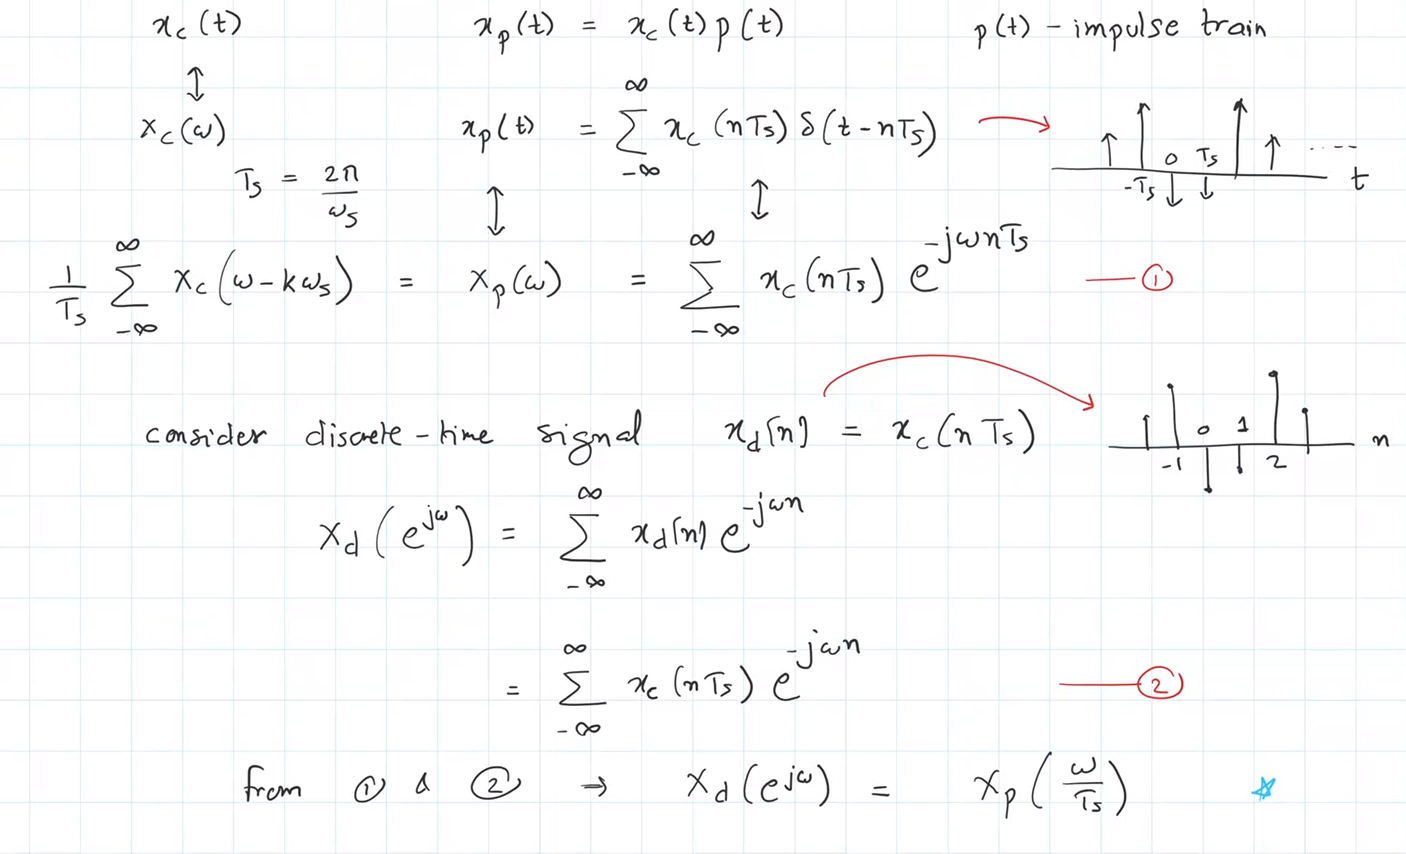 x_c(t)    x_p(t) = x_c(t) p(t)    p(t) – impulse train
↕
X_c(ω)    x_p(t) = ∑_{-∞}^{∞} x_c(nTs) δ(t - nTs)    -Ts 0 Ts .... t
Ts = 2π/ωs    ↕    ↕
1/Ts ∑_{-∞}^{∞} X_c(ω - kωs) = X_p(ω) = ∑_{-∞}^{∞} x_c(nTs) e^{-jωnTs}    — ①
consider discrete-time signal x_d[n] = x_c(nTs)    -1 0 1 2 n
X_d(e^{jω}) = ∑_{-∞}^{∞} x_d[n] e^{-jωn}
= ∑_{-∞}^{∞} x_c(nTs) e^{-jωn}    — ②
from ① & ② → X_d(e^{jω}) = X_p(ω/Ts)    ☆